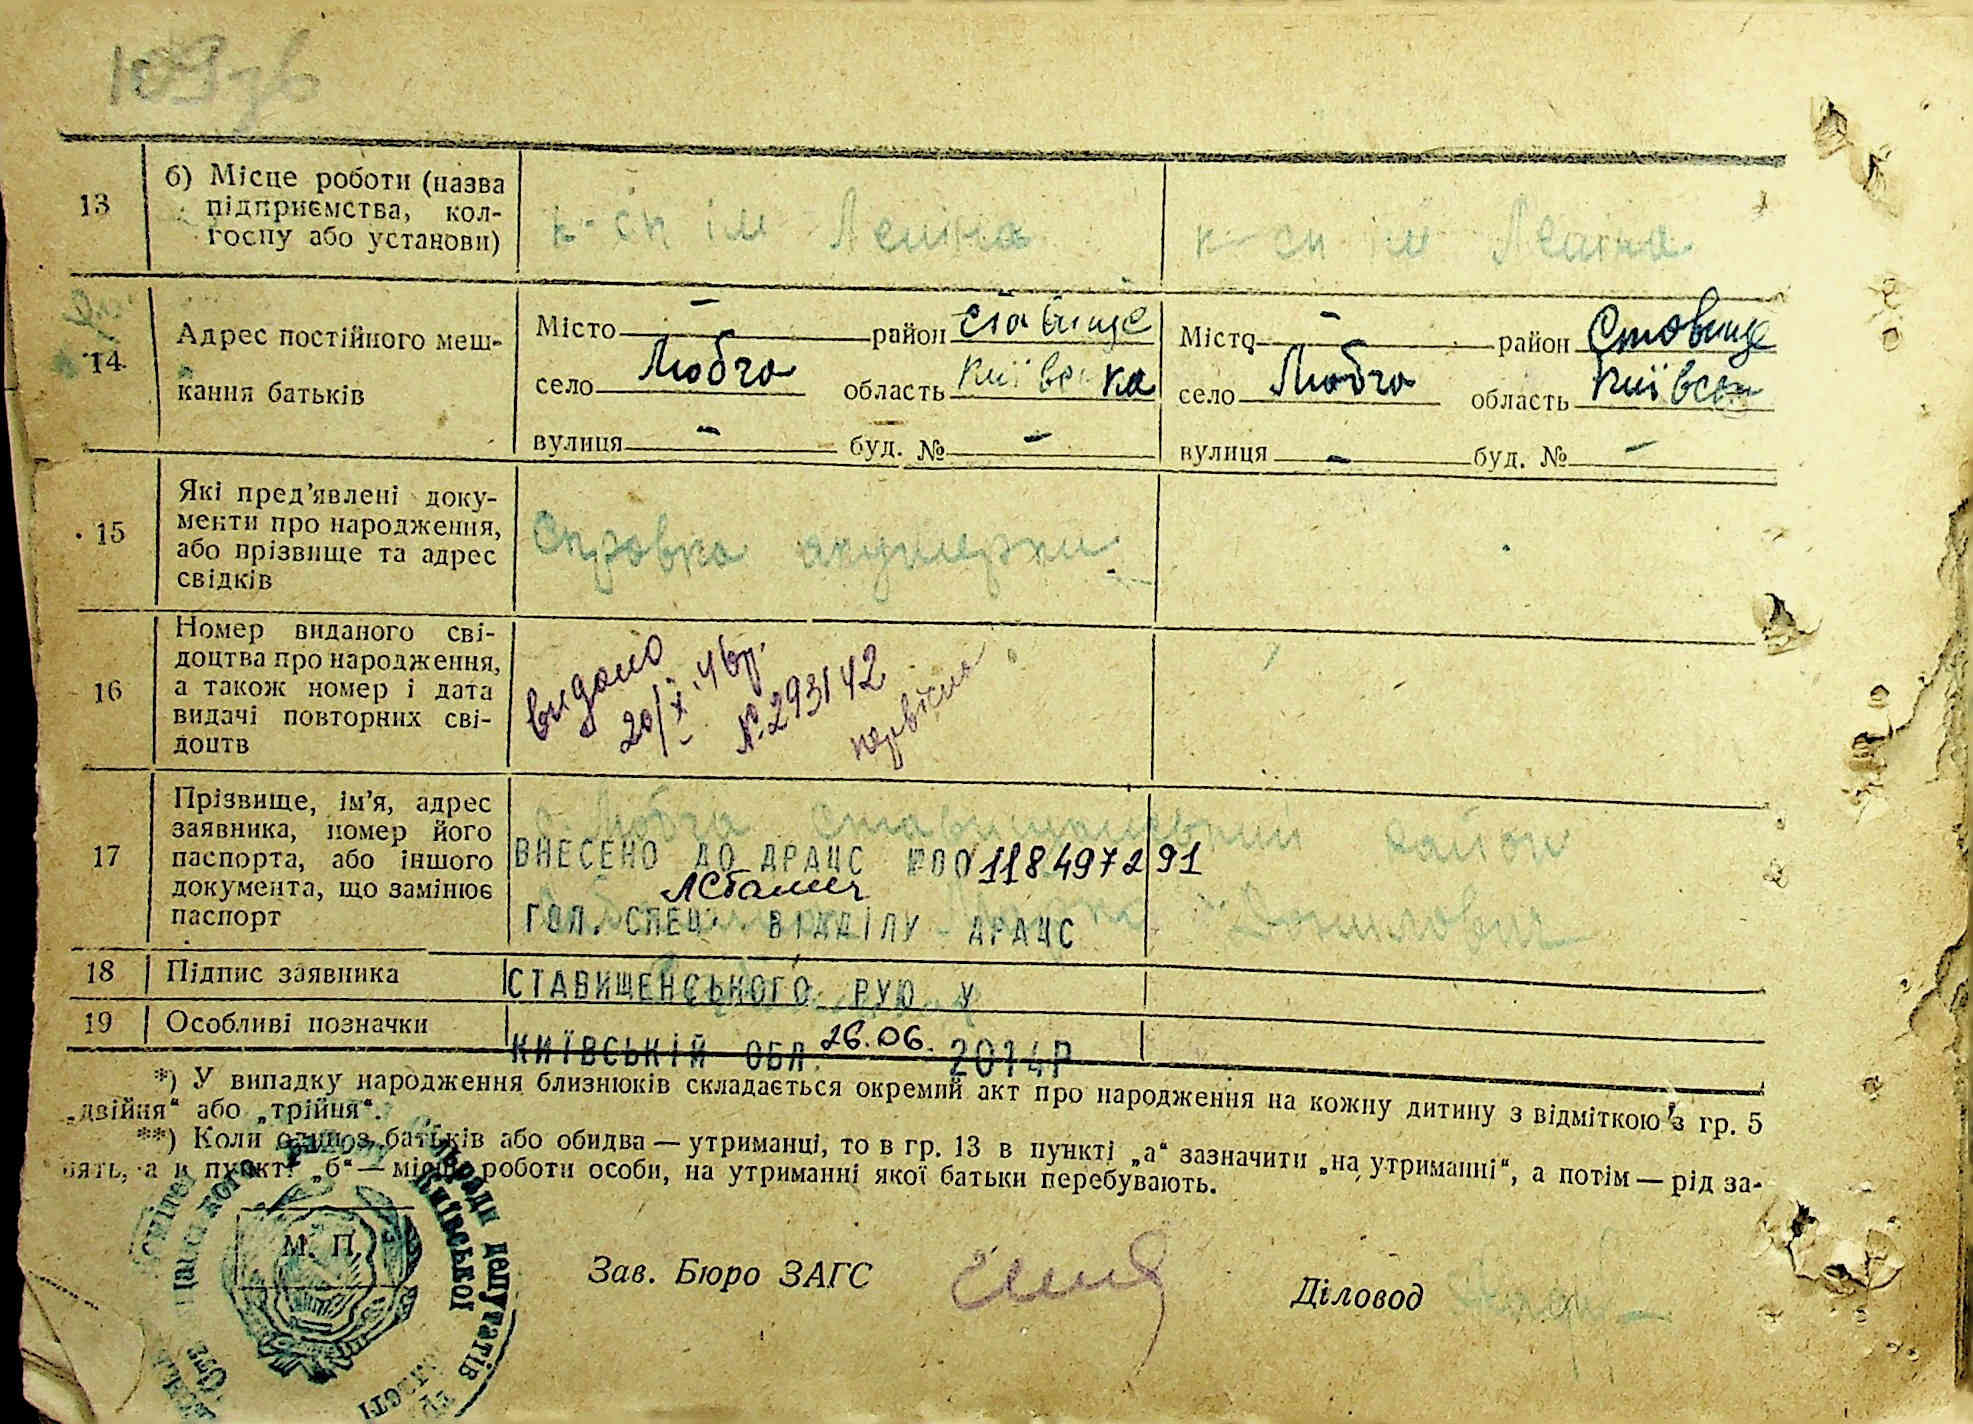 109зв
13
б) Місце роботи (назва
підприємства, кол-
госпу або установи)
к-сп ім Леніна
к-сп ім Леніна
14
Адрес постійного меш-
кання батьків
Місто — район Ставище
село Любча область Київська
вулиця — буд. № —
Місто — район Ставище
село Любча область Київськ
вулиця — буд. № —
15
Які пред’явлені доку-
менти про народження,
або прізвище та адрес
свідків
Справка акушерки
16
Номер виданого сві-
доцтва про народження,
а також номер і дата
видачі повторних сві-
доцтв
видано
20/X 46р.
№ 293142
первісна
17
Прізвище, ім’я, адрес
заявника, номер його
паспорта, або іншого
документа, що замінює
паспорт
с Любча Ставищанський район
ВНЕСЕНО ДО ДРАЦС №00118497291
ГОЛ. СПЕЦ ВІДДІЛУ ДРАЦС
Данилович
18
Підпис заявника
СТАВИЩЕНСЬКОГО РУЮ У
19
Особливі позначки
КИЇВСЬКІЙ ОБЛ. 26.06. 2014Р
*) У випадку народження близнюків складається окремий акт про народження на кожну дитину з відміткою з гр. 5
„двійня“ або „трійня“.
**) Коли один з батьків або обидва — утриманці, то в гр. 13 в пункті „а“ зазначити „на утриманні“, а потім — рід за-
нять, а в пункті „б“ — місце роботи особи, на утриманні якої батьки перебувають.
М. П.
депутатів
Київської
Зав. Бюро ЗАГС
Діловод